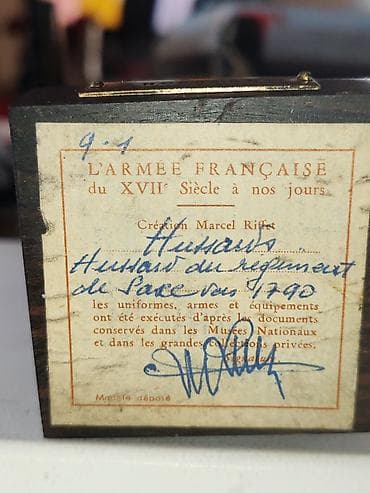 9.1
L'ARMÉE FRANÇAISE
du XVIIe Siècle à nos jours
Création Marcel Riffet
Hussards
Hussard du régiment
de Saxe vers 1790
les uniformes, armes et équipements
ont été exécutés d'après les documents
conservés dans les Musées Nationaux
et dans les grandes collections privées.
Signature
Modèle déposé